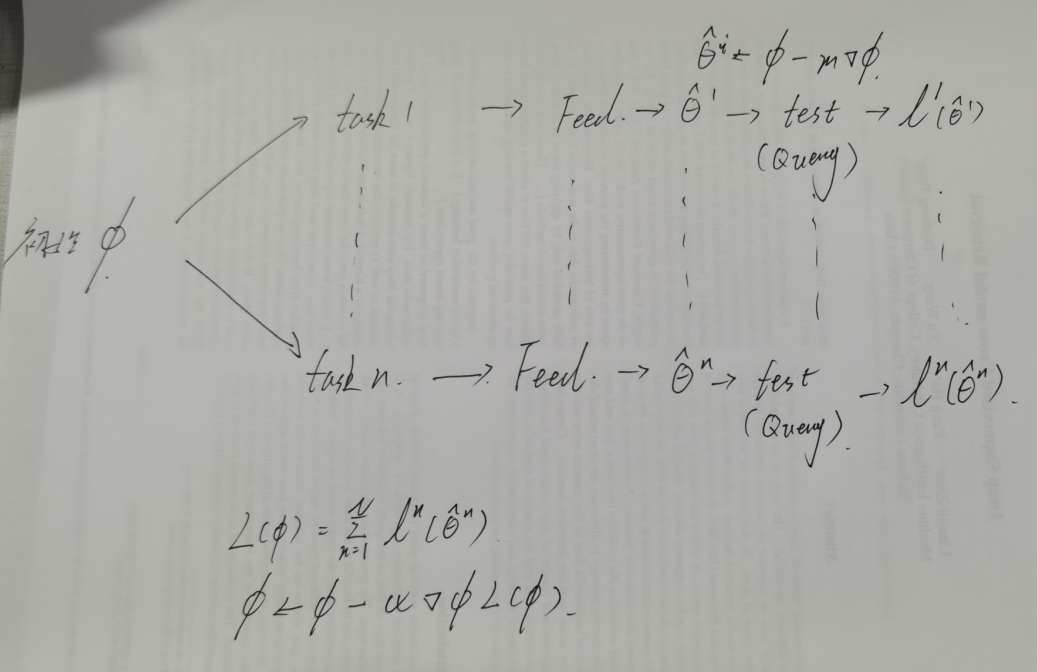 θ̂ⁱ ← φ - m∇φ.
task 1 → Feed. → θ̂¹ → test → l¹(θ̂¹)
(Query)
φ
task n. → Feed. → θ̂ⁿ → test → lⁿ(θ̂ⁿ).
(Query).
L(φ) = Σₙ₌₁ᴺ lⁿ(θ̂ⁿ)
φ ← φ - α∇φL(φ).